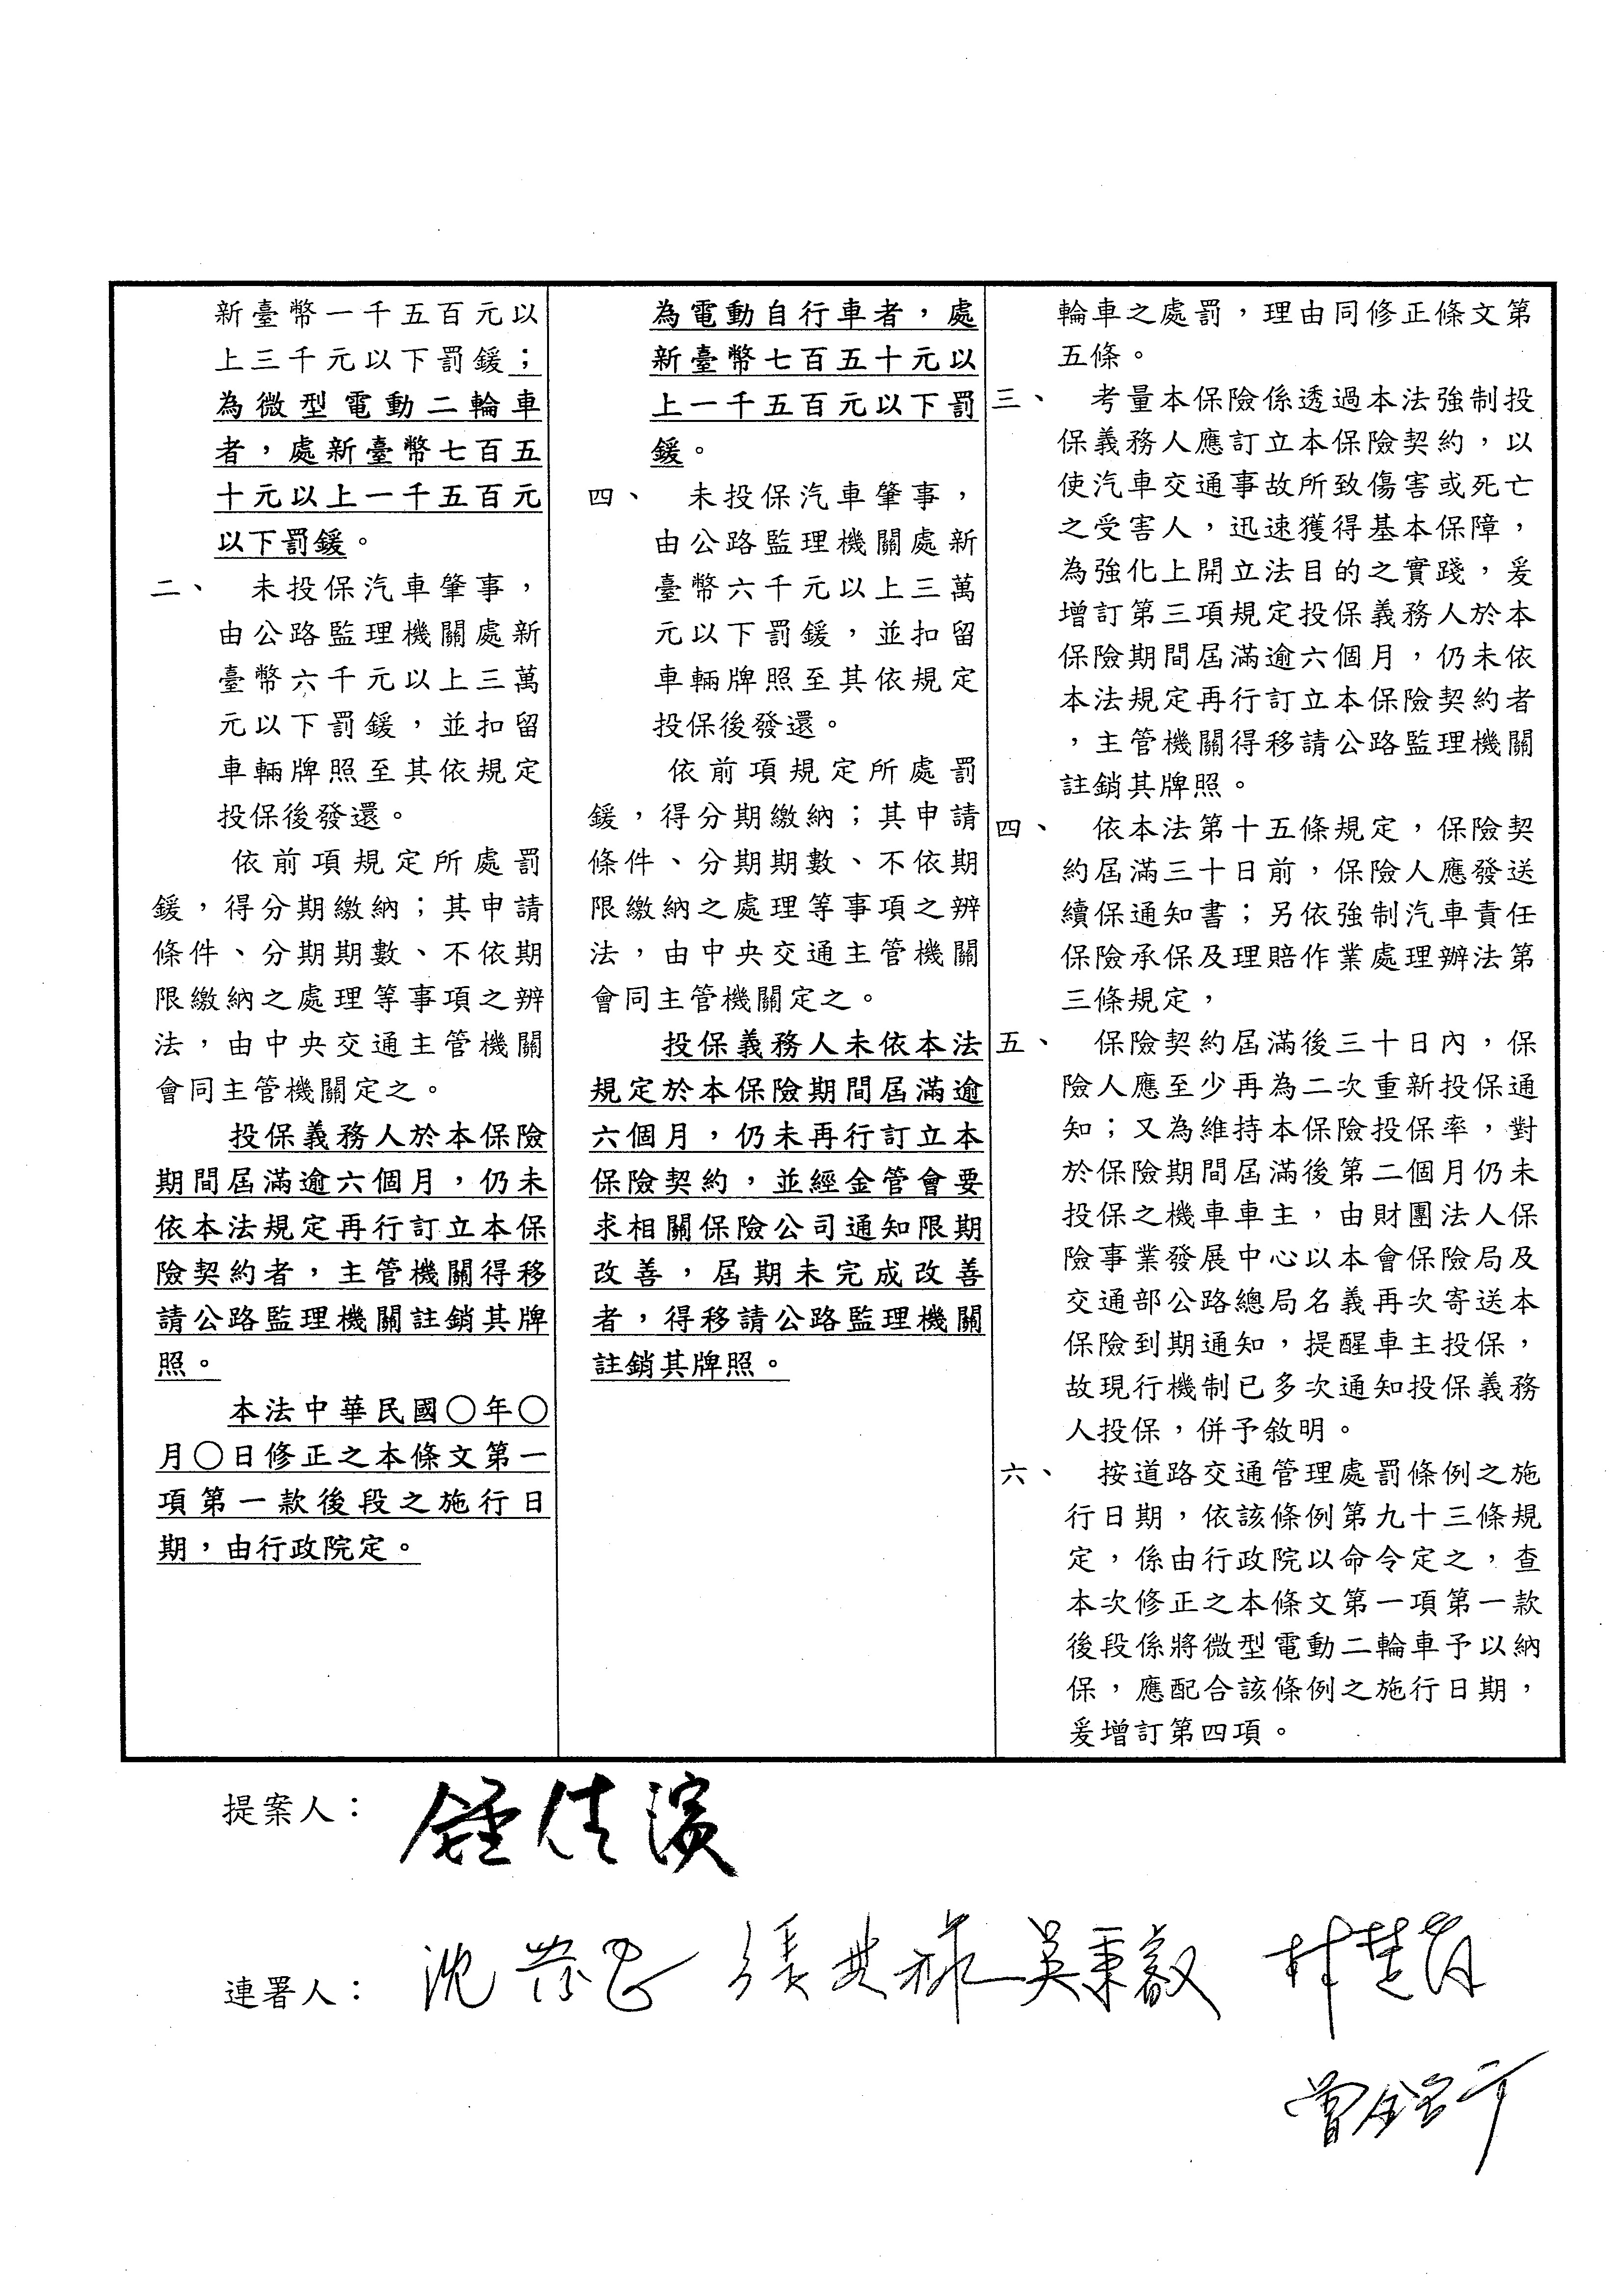 新臺幣一千五百元以
上三千元以下罰鍰；
為微型電動二輪車
者，處新臺幣七百五
十元以上一千五百元
以下罰鍰。
二、　未投保汽車肇事，
由公路監理機關處新
臺幣六千元以上三萬
元以下罰鍰，並扣留
車輛牌照至其依規定
投保後發還。
依前項規定所處罰
鍰，得分期繳納；其申請
條件、分期期數、不依期
限繳納之處理等事項之辦
法，由中央交通主管機關
會同主管機關定之。
投保義務人於本保險
期間屆滿逾六個月，仍未
依本法規定再行訂立本保
險契約者，主管機關得移
請公路監理機關註銷其牌
照。
本法中華民國〇年〇
月〇日修正之本條文第一
項第一款後段之施行日
期，由行政院定。
為電動自行車者，處
新臺幣七百五十元以
上一千五百元以下罰
鍰。
四、　未投保汽車肇事，
由公路監理機關處新
臺幣六千元以上三萬
元以下罰鍰，並扣留
車輛牌照至其依規定
投保後發還。
依前項規定所處罰
鍰，得分期繳納；其申請
條件、分期期數、不依期
限繳納之處理等事項之辦
法，由中央交通主管機關
會同主管機關定之。
投保義務人未依本法
規定於本保險期間屆滿逾
六個月，仍未再行訂立本
保險契約，並經金管會要
求相關保險公司通知限期
改善，屆期未完成改善
者，得移請公路監理機關
註銷其牌照。
輪車之處罰，理由同修正條文第
五條。
三、　考量本保險係透過本法強制投
保義務人應訂立本保險契約，以
使汽車交通事故所致傷害或死亡
之受害人，迅速獲得基本保障，
為強化上開立法目的之實踐，爰
增訂第三項規定投保義務人於本
保險期間屆滿逾六個月，仍未依
本法規定再行訂立本保險契約者
，主管機關得移請公路監理機關
註銷其牌照。
四、　依本法第十五條規定，保險契
約屆滿三十日前，保險人應發送
續保通知書；另依強制汽車責任
保險承保及理賠作業處理辦法第
三條規定，
五、　保險契約屆滿後三十日內，保
險人應至少再為二次重新投保通
知；又為維持本保險投保率，對
於保險期間屆滿後第二個月仍未
投保之機車車主，由財團法人保
險事業發展中心以本會保險局及
交通部公路總局名義再次寄送本
保險到期通知，提醒車主投保，
故現行機制已多次通知投保義務
人投保，併予敘明。
六、　按道路交通管理處罰條例之施
行日期，依該條例第九十三條規
定，係由行政院以命令定之，查
本次修正之本條文第一項第一款
後段係將微型電動二輪車予以納
保，應配合該條例之施行日期，
爰增訂第四項。
提案人：鍾佳濱
連署人：沈發惠 吳秉叡 林楚茵